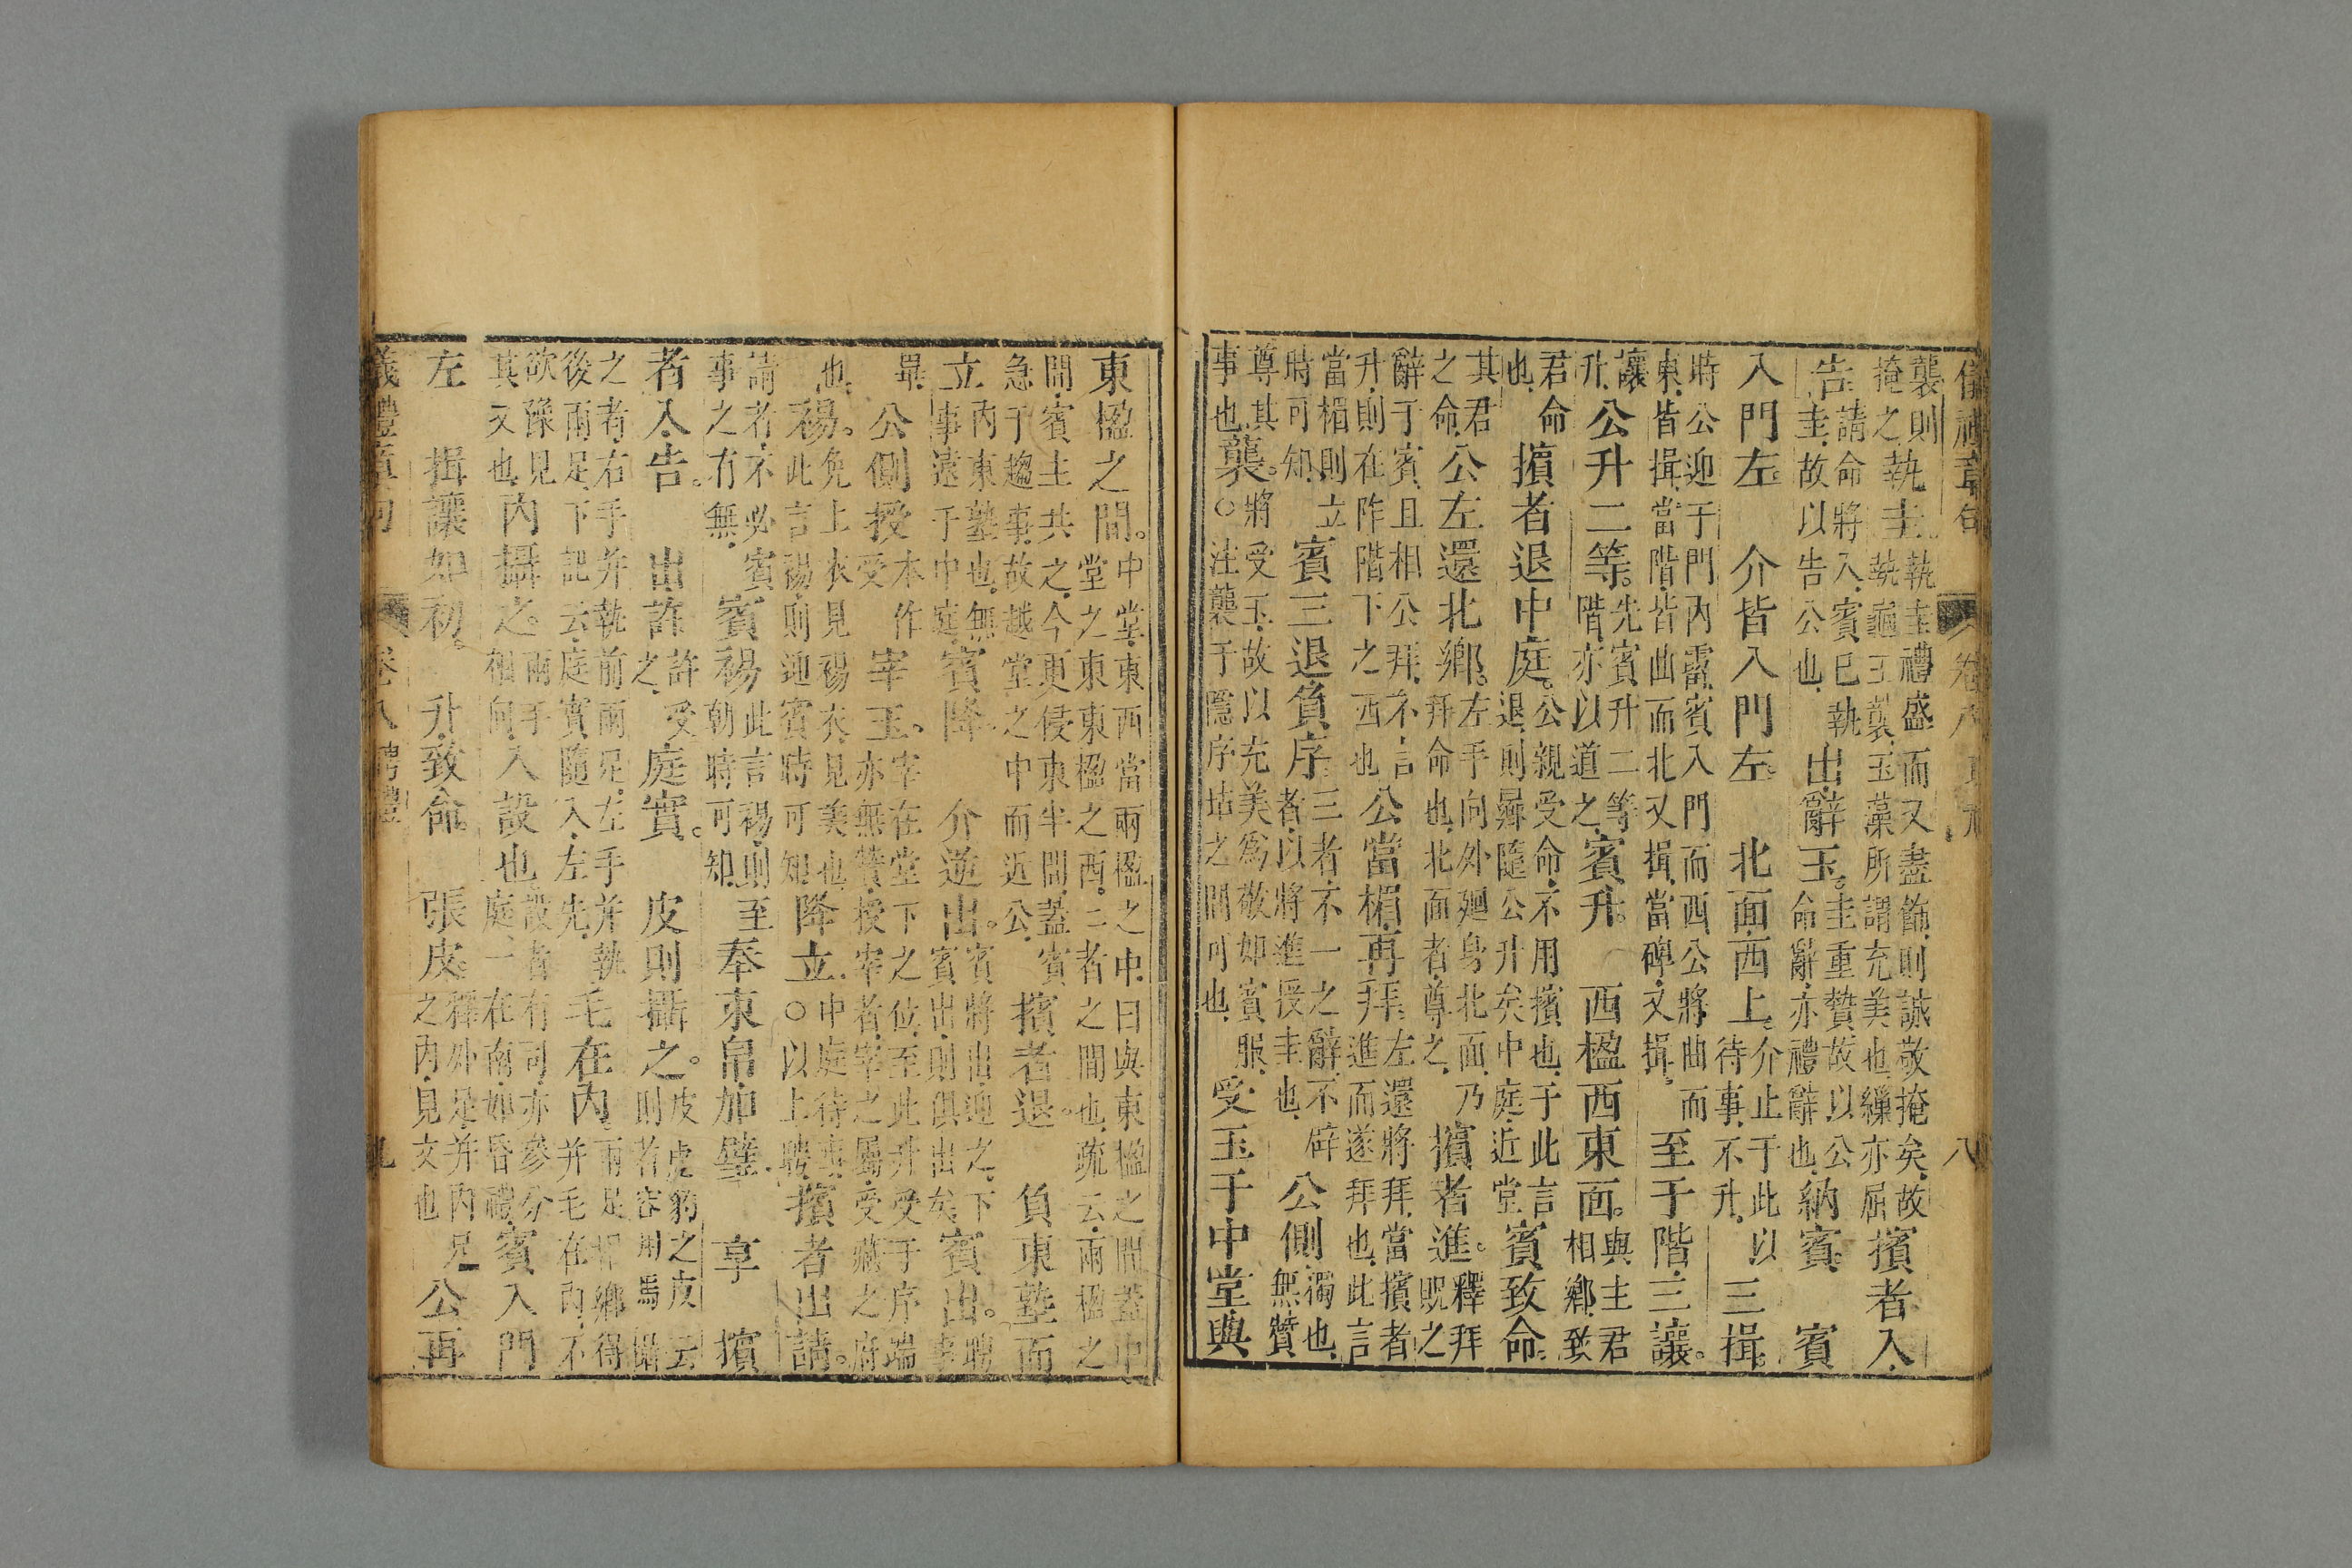 儀禮章句 卷八 聘禮 八
襲則掩之執圭執圭禮盛而又盡飾則誠敬掩矣故執龜玉襲玉藻所謂充美也繅亦屈擯者入
告請命將入賓已執圭故以告公也出辭玉圭重贄故以公命辭亦禮辭也納賓 賓
入門左 介皆入門左 北面西上介止于此以待事不升三揖
時公迎于門內霤賓入門而西公將曲而東皆揖當階皆曲而北又揖當碑又揖至于階三讓
讓升公升二等先賓升二等階亦以道之賓升 西楹西東面與主君相鄉致
君命也擯者退中庭公親受命不用擯也于此言退則羣隨公升矣中庭近堂賓致命
其君之命公左還北鄉左手向外廻身北面乃拜命也北面者尊之擯者進釋拜貺之
辭于賓且相公拜不言升則在阼階下之西也公當楣再拜左還將拜當擯者進而遂拜也此言
當楣則立時可知賓三退負序三者不一之辭不辟者以將進授圭也公側獨也無贊
尊其事也襲將受玉故以充美爲敬如賓服○注襲于隱序坫之間可也受玉于中堂與
東楹之間中堂東西當兩楹之中曰與東楹之間蓋中堂之東東楹之西二者之間也疏云兩楹之
間賓主共之今更侵東半間蓋賓急于趨事故越堂之中而近公擯者退 負東塾而
立內東塾也無事遠于中庭賓降 介逆出賓將出迎之下賓出則俱出矣賓出聘事
畢公側授本作受宰玉宰在堂下之位至此升受于序端亦無贊授宰者宰之屬受藏之府
也裼免上衣見裼衣見美也此言裼則迎賓時可知降立中庭待事○以上聘擯者出請
請者不必賓事之有無賓裼此言裼則至朝時可知奉束帛加璧 享 擯
者入告 出許許受之庭實 皮則攝之皮虎豹之皮云則者容用馬攝
之者右手并執前兩足左手并執後兩足下記云庭實隨入左先毛在內兩足相鄉得并毛在內不
欲豫見其文也內攝之兩手相向入設也設者有司亦參分庭一在南如昏禮賓入門
左 揖讓如初 升致命 張皮釋外足并內足之內見文也公再
儀禮章句 卷八聘禮 九